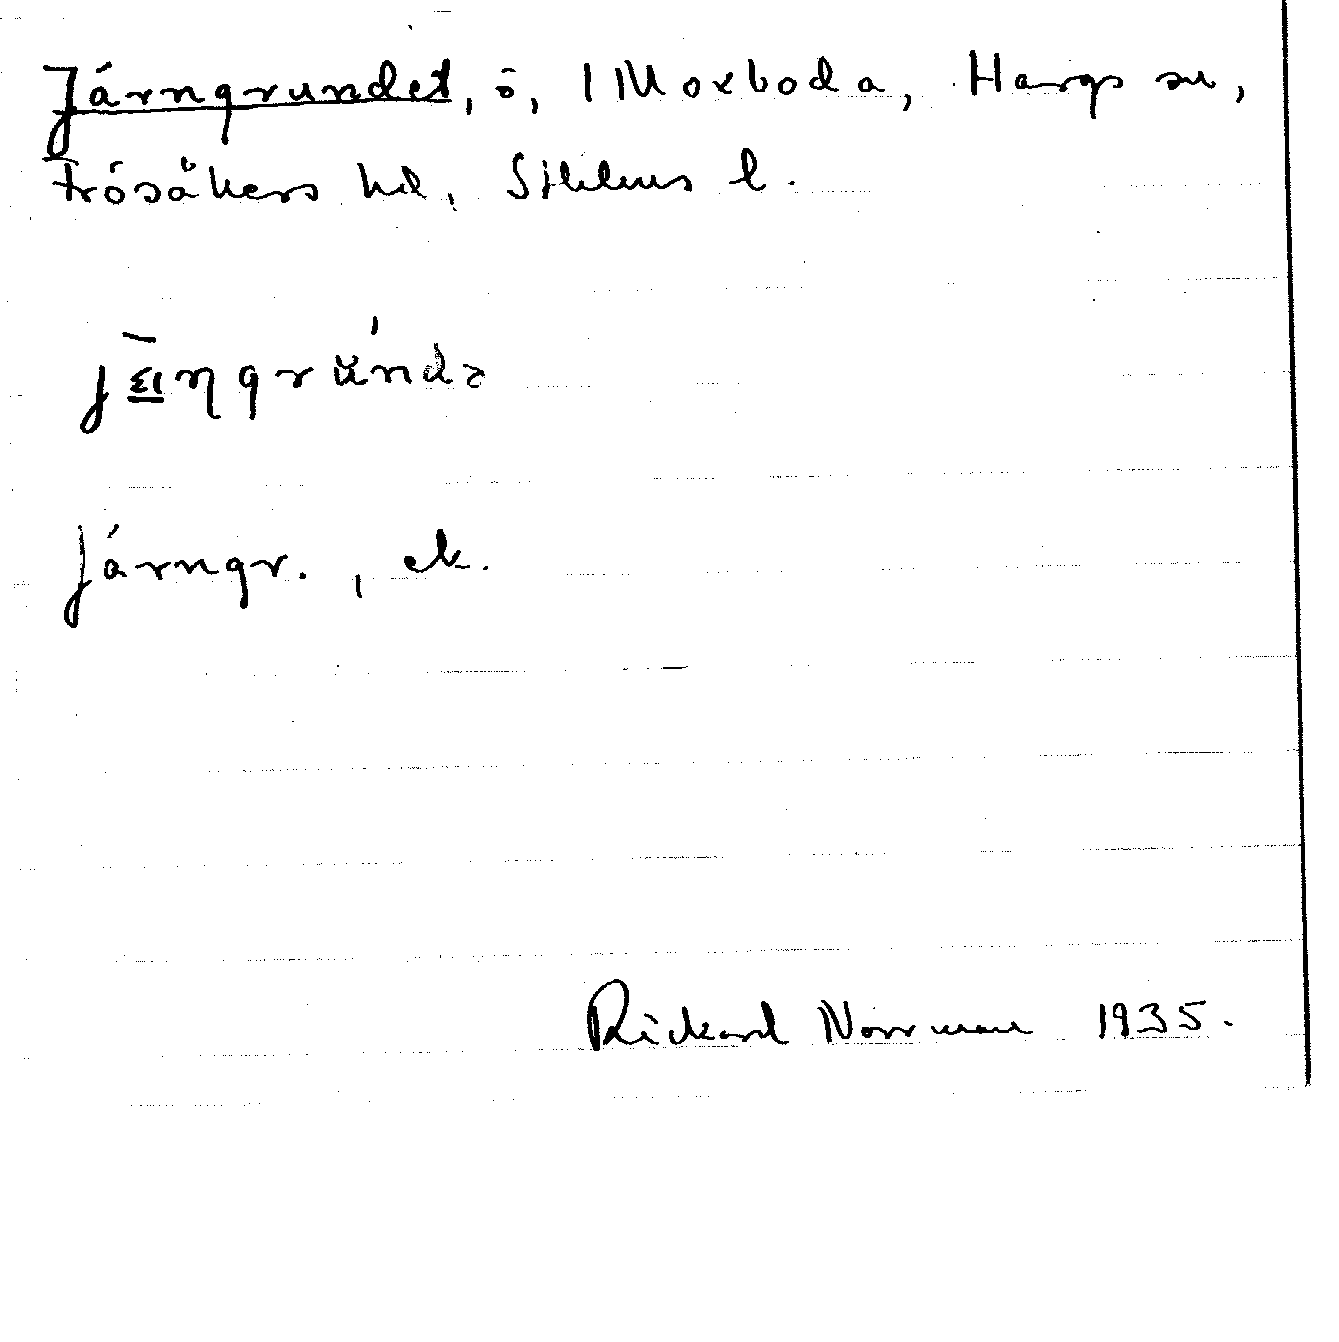 Järngrundet, ö, 1 Moxboda, Hargs sn,
Frösåkers hd, Sthlms l.
Järngr., ek.
Rickard Norrman 1935.